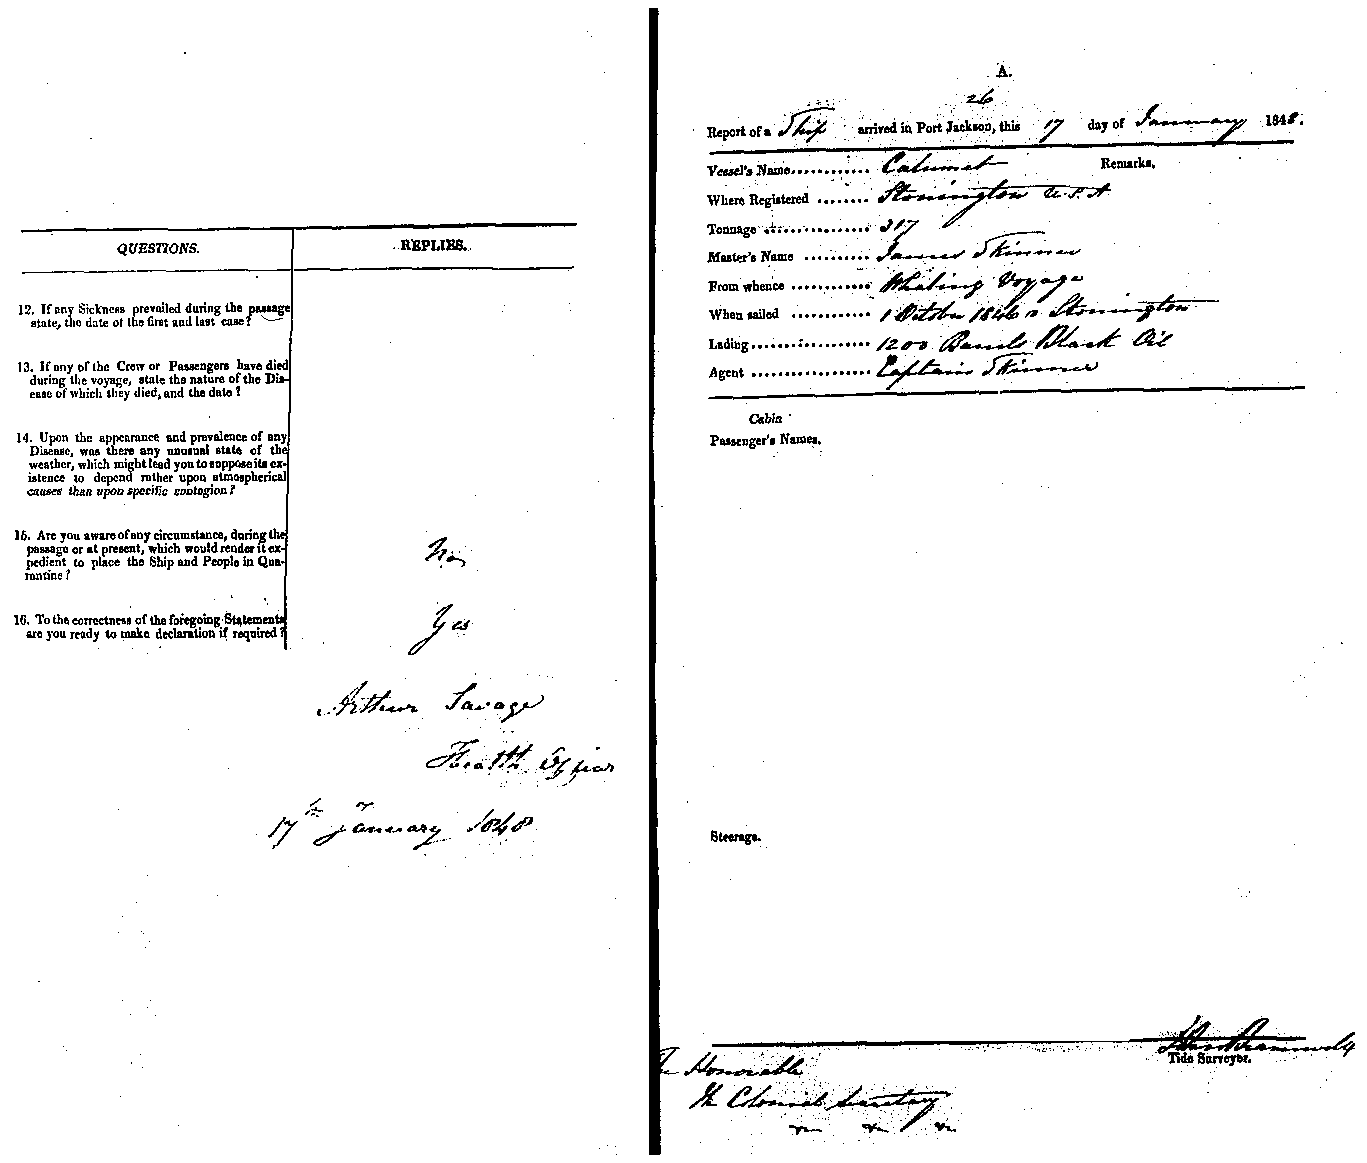 QUESTIONS.
REPLIES.
12. If any Sickness prevailed during the passage
state, the date of the first and last case?
13. If any of the Crew or Passengers have died
during the voyage, state the nature of the Dis-
ease of which they died, and the date?
14. Upon the appearance and prevalence of any
Disease, was there any unusual state of the
weather, which might lead you to suppose its ex-
istence to depend rather upon atmospherical
causes than upon specific contagion?
15. Are you aware of any circumstance, during the
passage or at present, which would render it ex-
pedient to place the Ship and People in Qua-
rantine?
No
16. To the correctness of the foregoing Statements
are you ready to make declaration if required?
Yes
Arthur Savage
Health Officer
17th January 1848
A.
26
Report of a Ship arrived in Port Jackson, this 17 day of January 1848.
Vessel's Name............ Calumet
Remarks.
Where Registered ........ Stonington U.S.A
Tonnage ................ 317
Master's Name .......... James Skinner
From whence ............ Whaling Voyage
When sailed ............ 1 October 1846 Stonington
Lading.................. 1200 Barrels Black Oil
Agent .................. Captain Skinner
Cabin
Passenger's Names.
Steerage.
Tide Surveyor.
The Honorable
The Colonial Secretary